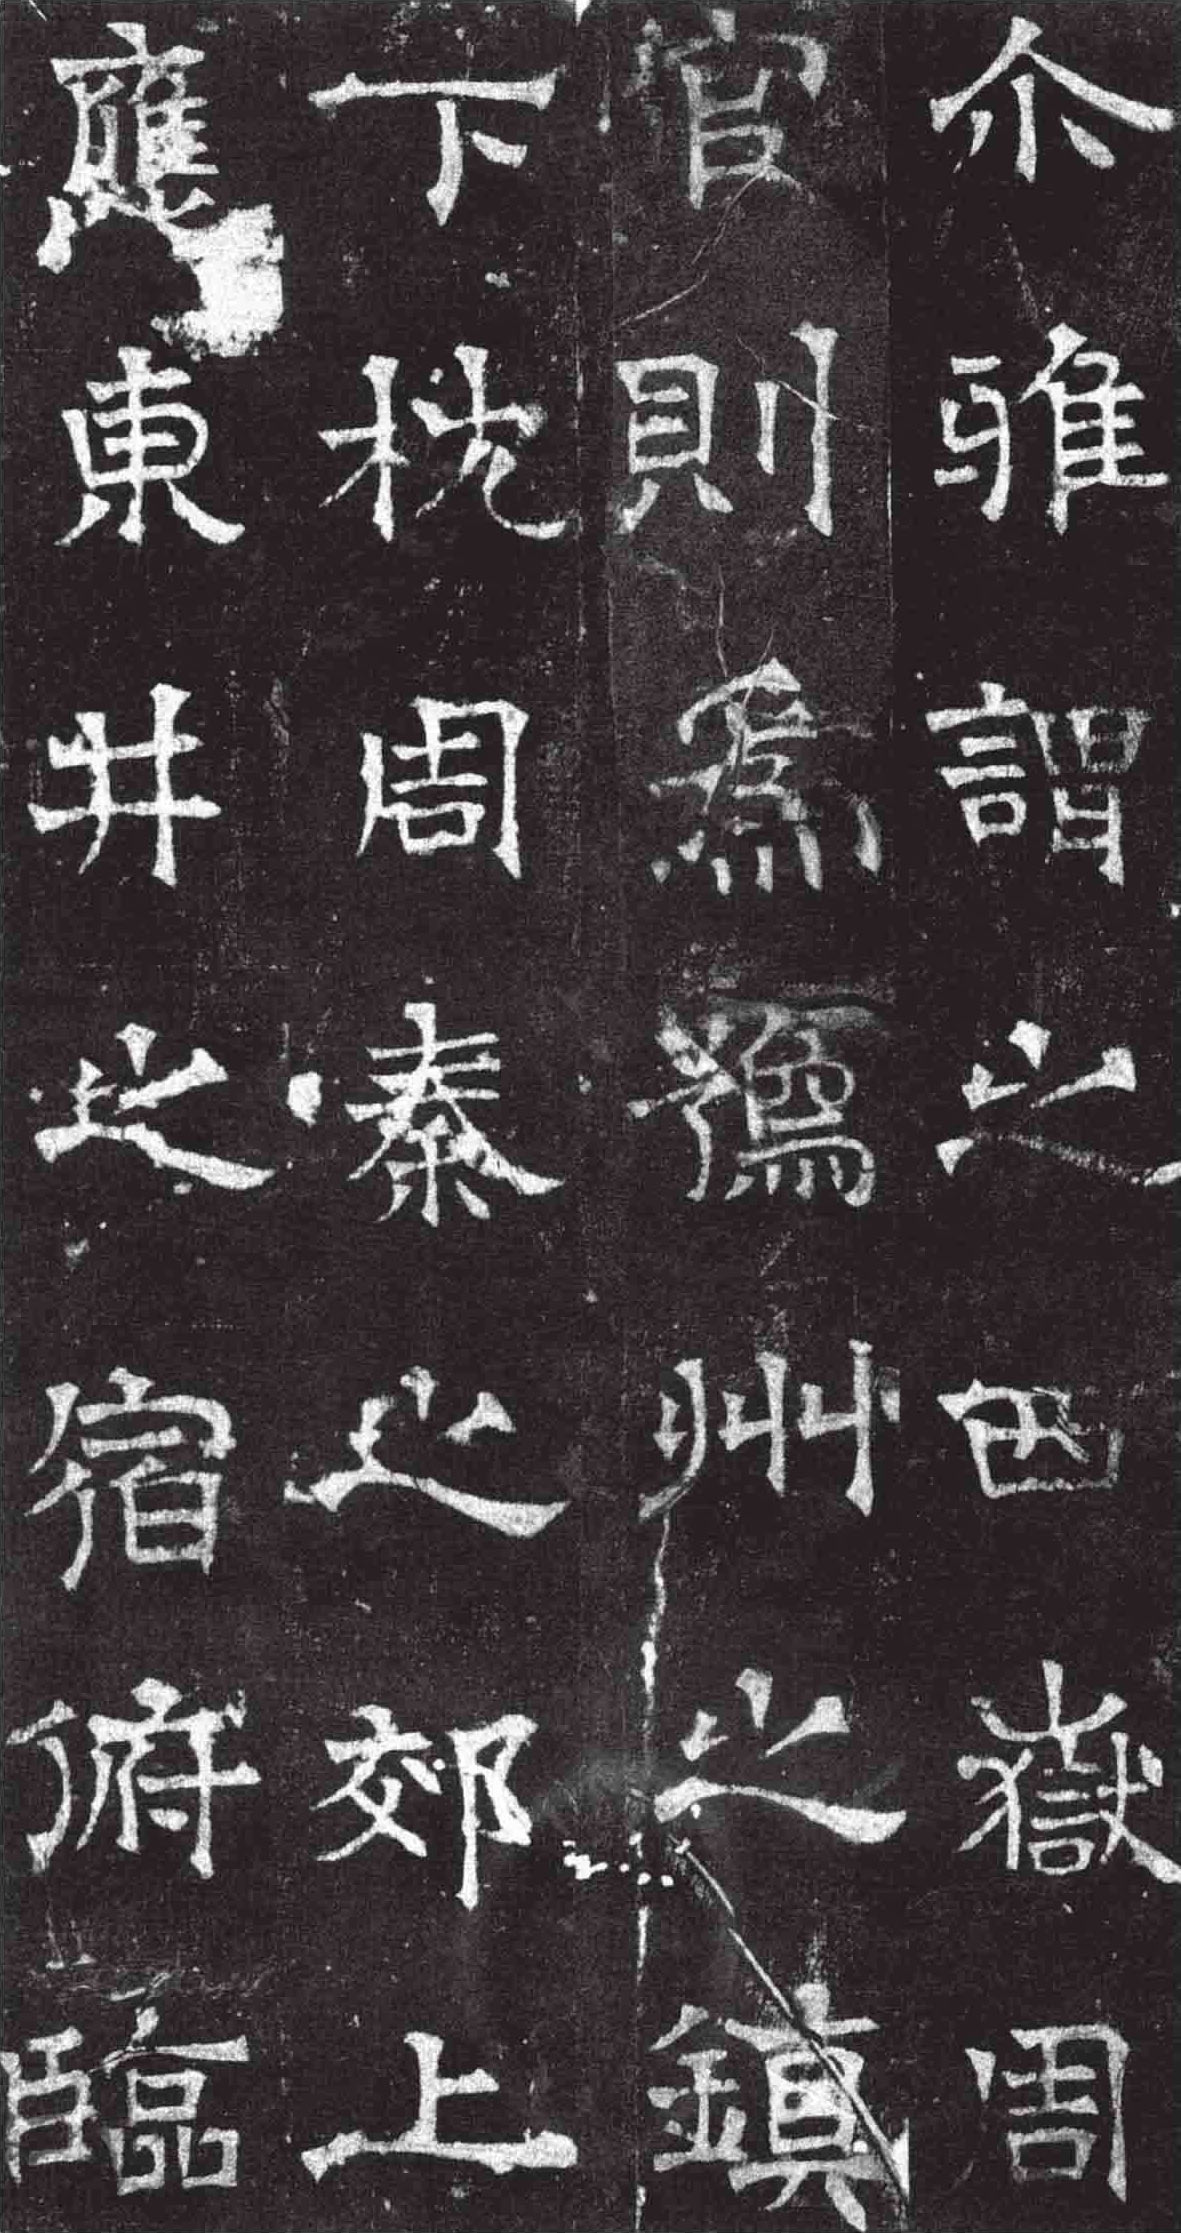 尒雅謂之西嶽周
官則爲豫州之鎮
下枕周秦之郊上
應東井之宿俯臨